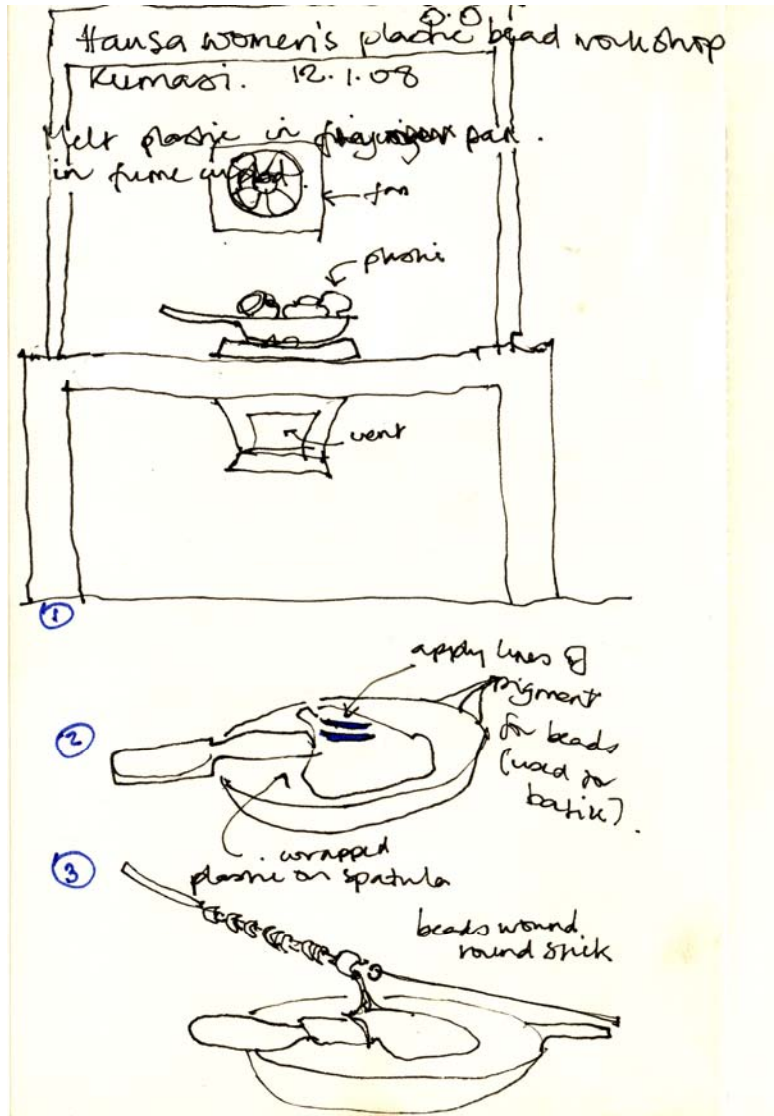 Hausa women's plastic bead workshop
Kumasi. 12.1.08
Melt plastic in frying pan.
in fume
fan
plastic
vent
1
apply lines of
pigment
for beads
(used for
batik).
2
wrapped
plastic on spatula
3
beads wound
round stick